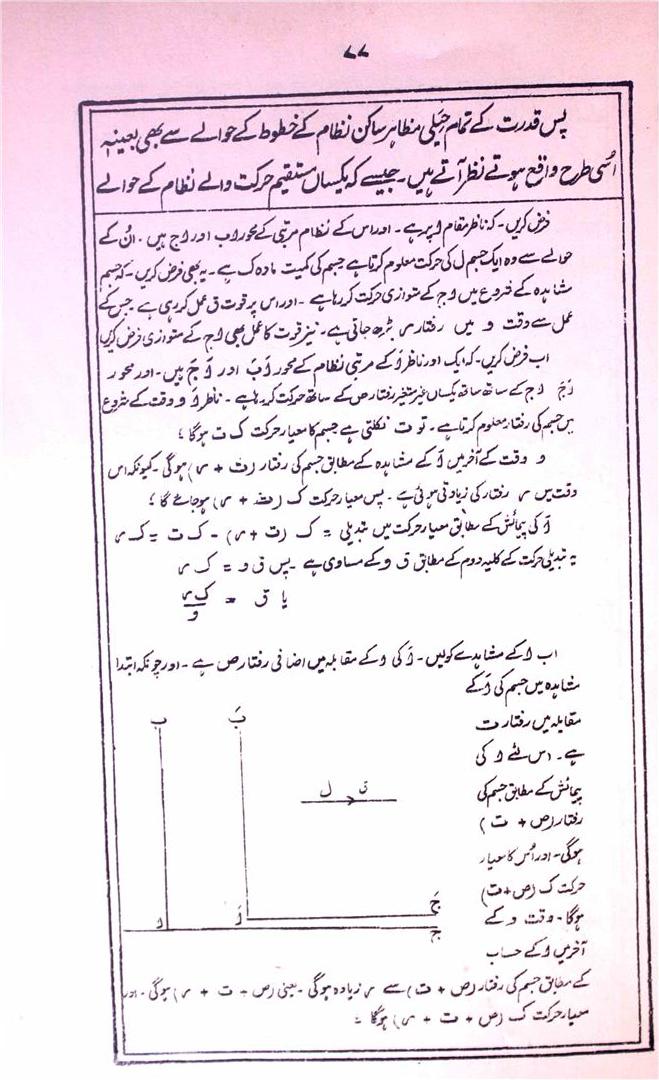 ۷۷
پس قدرت کے تمام حیلی مظاہر ساکن نظام کے خطوط کے حوالے سے بھی بعینہٖ
اسی طرح واقع ہوتے نظر آتے ہیں۔ جیسے کہ یکساں مستقیم حرکت والے نظام کے حوالے
فرض کریں۔ کہ ناظر مقام ا پر ہے۔ اور اس کے نظام مرتبی کے محور اب اور اج ہیں۔ ان کے
حوالے سے وہ ایک جسم ل کی حرکت معلوم کرتا ہے جسم کی کمیت مادہ ک ہے۔ یہ بھی فرض کریں۔ کہ جسم
مشاہدہ کے شروع میں اج کے متوازی حرکت کر رہا ہے۔ اور اس پر قوت ق عمل کر رہی ہے جس کے
عمل سے وقت و میں رفتار س بڑھ جاتی ہے۔ نیز قوت کا عمل بھی اج کے متوازی فرض کریں
اب فرض کریں۔ کہ ایک اور ناظر اَ کے مرتبی نظام کے محور اَبَ اور اَجَ ہیں۔ اور محور
اَجَ اج کے ساتھ ساتھ یکساں غیر متغیر رفتار ص کے ساتھ حرکت کر رہا ہے۔ ناظر اَ و وقت کے شروع
میں جسم کی رفتار معلوم کرتا ہے۔ تو ت نکلتی ہے جسم کا معیار حرکت ک ت ہوگا ؛
و وقت کے آخر میں اَ کے مشاہدہ کے مطابق جسم کی رفتار (ت + س) ہوگی۔ کیونکہ اس
وقت میں س رفتار کی زیادتی ہوئی ہے۔ پس معیار حرکت ک (ت + س) ہو جائے گا ؛
اَ کی پیمائش کے مطابق معیار حرکت میں تبدیلی = ک (ت + س) - ک ت = ک س
یہ تبدیلی حرکت کے کلیہ دوم کے مطابق ق و کے مساوی ہے۔ پس ق و = ک س
یا ق = ک س / و
اب ا کے مشاہدے کو لیں۔ اَ کی ا کے مقابلہ میں اضافی رفتار ص ہے۔ اور چونکہ ابتدا
مشاہدہ میں جسم کی اَ کے
مقابلہ میں رفتار ت
ہے۔ اس لئے ا کی
پیمائش کے مطابق جسم کی
رفتار (ص + ت)
ہوگی۔ اور اس کا معیار
حرکت ک (ص + ت)
ہوگا۔ وقت و کے
آخر میں ا کے حساب
کے مطابق جسم کی رفتار (ص + ت) سے س زیادہ ہوگی۔ یعنی (ص + ت + س) ہوگی۔ اور
معیار حرکت ک (ص + ت + س) ہوگا ؛
ب
بَ
ل ق
ا
اَ
جَ
ج